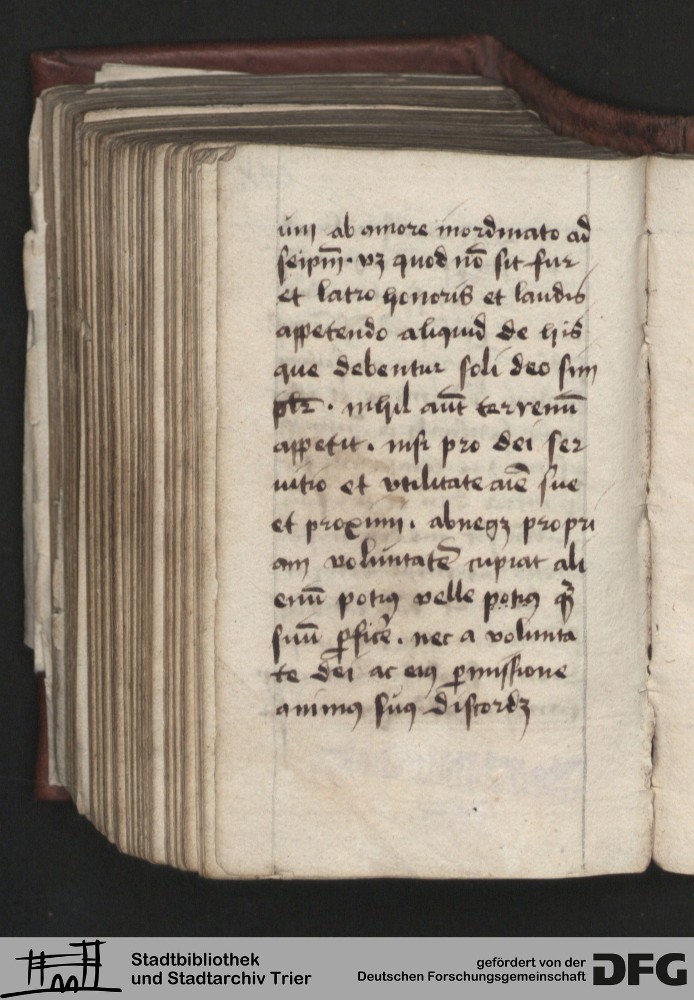 um ab amore inordinato ad
seipm̄. vꝫ quod nō sit fur
et latro honoris et laudis
appetendo aliquid de his
que debentur soli deo sim
plr̄. nihil aūt terrenū
appetit. nisi pro dei ser
uitio et vtilitate aīe sue
et proximi. abnegꝫ propri
am voluntatē cupiat ali
enū potiꝯ velle potiꝯ qͣ̄
suū ꝑfice᷑. nec a volunta
te dei ac eiꝯ ꝑmissione
animꝯ suꝯ discordꝫ
Stadtbibliothek
und Stadtarchiv Trier
gefördert von der
Deutschen Forschungsgemeinschaft
DFG